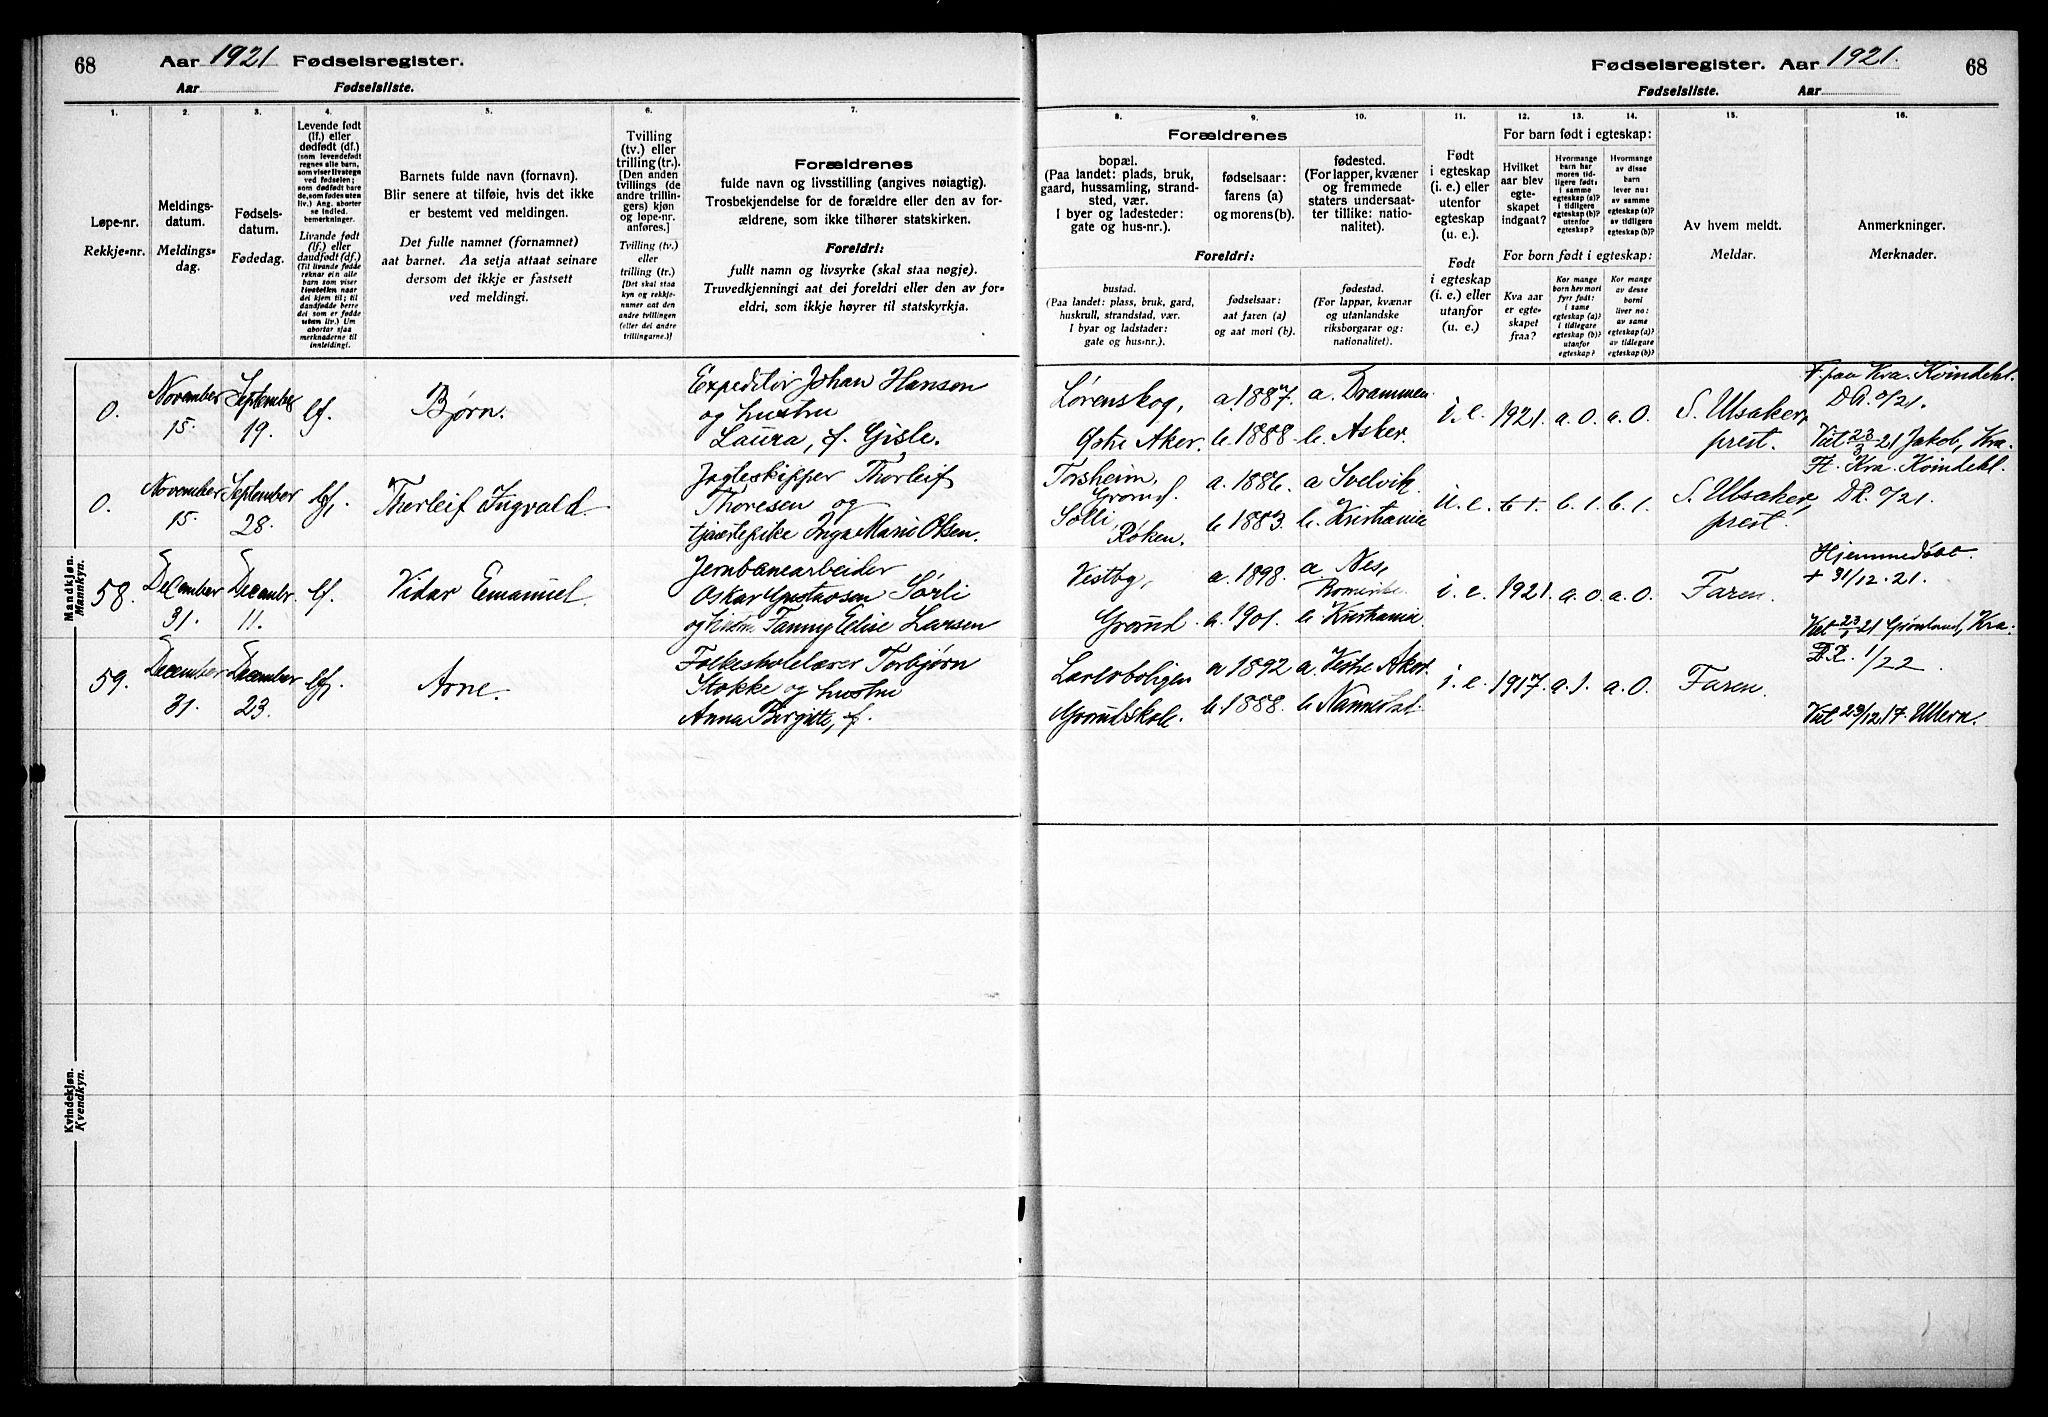 68
Aar 1921 Fødselsregister.
Aar Fødselsliste.
1. 2. 3. 4. 5. 6. 7.
Løpe-nr.
Rekkje-nr.
Meldings-
datum.
Meldings-
dag.
Fødsels-
datum.
Fødedag.
Levende født
(lf.) eller
dødfødt (df.)
(som levendefødt
regnes alle barn,
som viser livstegn
ved fødselen;
som dødfødt bare
de, som fødes uten
liv.) Ang. aborter
se indled.
bemerkninger.
Livande født
(lf.) eller
daudfødt (df.)
(Til livande fødde
reknar ein alle
barn som viser
livsteikn naar
dei kjem til; til
daudfødde berre
dei som er fødde
utan liv.) Um
abortar sjaa
merknaderne til
innleiding).
Barnets fulde navn (fornavn).
Blir senere at tilføie, hvis det ikke
er bestemt ved meldingen.
Det fulle namnet (fornamnet)
aat barnet. Aa setja attaat seinare
dersom det ikkje er fastsett
ved meldingi.
Tvilling
(tv.) eller
trilling (tr.).
[Den anden
tvillings (de
andre trillin-
gers) kjøn
og løpe-nr.
anføres.]
Tvilling (tv.)
eller
trilling (tr.)
[Det skal staa
kyn og rekkje-
numer aat den
andre tvillingen
(eller dei andre
trillingarne.)]
Forældrenes
fulde navn og livsstilling (angives nøiagtig).
Trosbekjendelse for de forældre eller den av for-
ældrene, som ikke tilhører statskirken.
Foreldri:
fullt namn og livsyrke (skal staa nøgje).
Truvedkjenningi aat dei foreldri eller den av for-
eldri, som ikkje høyrer til statskyrkja.
Mandkjøn.
Mannkyn.
0. November 15. September 19. lf. Bjørn.
Expeditør Johan Hansen
og hustru
Laura, f. Gisle.
0. November 15. September 28. lf. Thorleif Ingvald.
Jagteskipper Thorleif
Thoresen og
tjenestepike Inga Marie Olsen.
58. December 31. Decembr 11. lf. Vidar Emanuel.
Jernbanearbeider
Oskar Gustavsen Sørli
og hustru Fanny Elise Larsen
59. December 31. December 23. lf. Arne.
Folkeskolelærer Torbjørn
Stokke og hustru
Anna Birgitte, f.
Kvindekjøn.
Kvendkyn.
Fødselsregister. Aar 1921. 68
Fødselsliste. Aar
8. 9. 10. 11. 12. 13. 14. 15. 16.
Forældrenes
bopæl.
(Paa landet: plads, bruk,
gaard, hussamling, strand-
sted, vær.
I byer og ladesteder:
gate og hus-nr.).
fødselsaar:
farens (a)
og morens (b).
fødested.
(For lapper, kvæner
og fremmede
staters undersaat-
ter tillike: natio-
nalitet).
Foreldri:
bustad.
(Paa landet: plass, bruk, gard,
huskrull, strandstad, vær.
I byar og ladstader:
gate og hus-nr.).
fødselsaar:
aat faren (a)
og aat mori (b).
fødestad.
(For lappar, kvænar
og utanlandske
riksborgarar og:
nationalitet).
Født
i egteskap
(i. e.) eller
utenfor
egteskap
(u. e.).
Født
i egteskap
(i. e.) eller
utanfor
(u. e.)
For barn født i egteskap:
Hvilket
aar blev
egte-
skapet
indgaat?
Hvormange
barn har
moren tid-
ligere født:
i samme
egteskap (a)?
i tidligere
egteskap (b)?
utenfor
egteskap?
Hvormange
av disse
barn
lever nu:
av samme
egteskap (a)?
av tidligere
egteskap (b)?
For born født i egteskap:
Kva aar
er egte-
skapet
fraa?
Kor mange
born hev mori
fyrr født:
i same
egteskap (a)?
i tidlegare
egteskap (b)?
utanfor
egteskap?
Kor mange
av desse
borni
liver no:
av same
egteskap (a)?
av tidlegare
egteskap (b)?
Av hvem meldt.
Meldar.
Anmerkninger.
Merknader.
Lørenskog,
Østre Aker.
a. 1887.
b. 1888
a. Drammen
b. Asker.
i. e. 1921. a. 0. a. 0.
S. Ulsaker,
prest.
F. paa Kra. Kvindekl.
D.R. 0/21.
Viet 23/3 21 Jakob, Kra.
Torsheim,
Grorud.
Solli,
Røken.
a. 1886.
b 1883.
a Svelvik
b. Kristiania
u. e. b. 1. b. 1.
S. Ulsaker,
prest.
Kra. Kvindekl.
D.R. 0/21.
Vestby,
Grorud.
a. 1898.
b. 1901.
a Nes,
Romerike.
b Kristiania
i. e. 1921. a. 0. a. 0.
Faren.
Hjemmedøbt
+ 31/12. 21.
Grønland, Kra.
Lærerboligen
Grorud skole.
a 1892
b. 1888.
a. Vestre Aker.
b Nannestad.
i. e. 1917. a. 1. a. 0.
Faren.
D.R. 1/22.
Viet 23/12 17. Ullern.